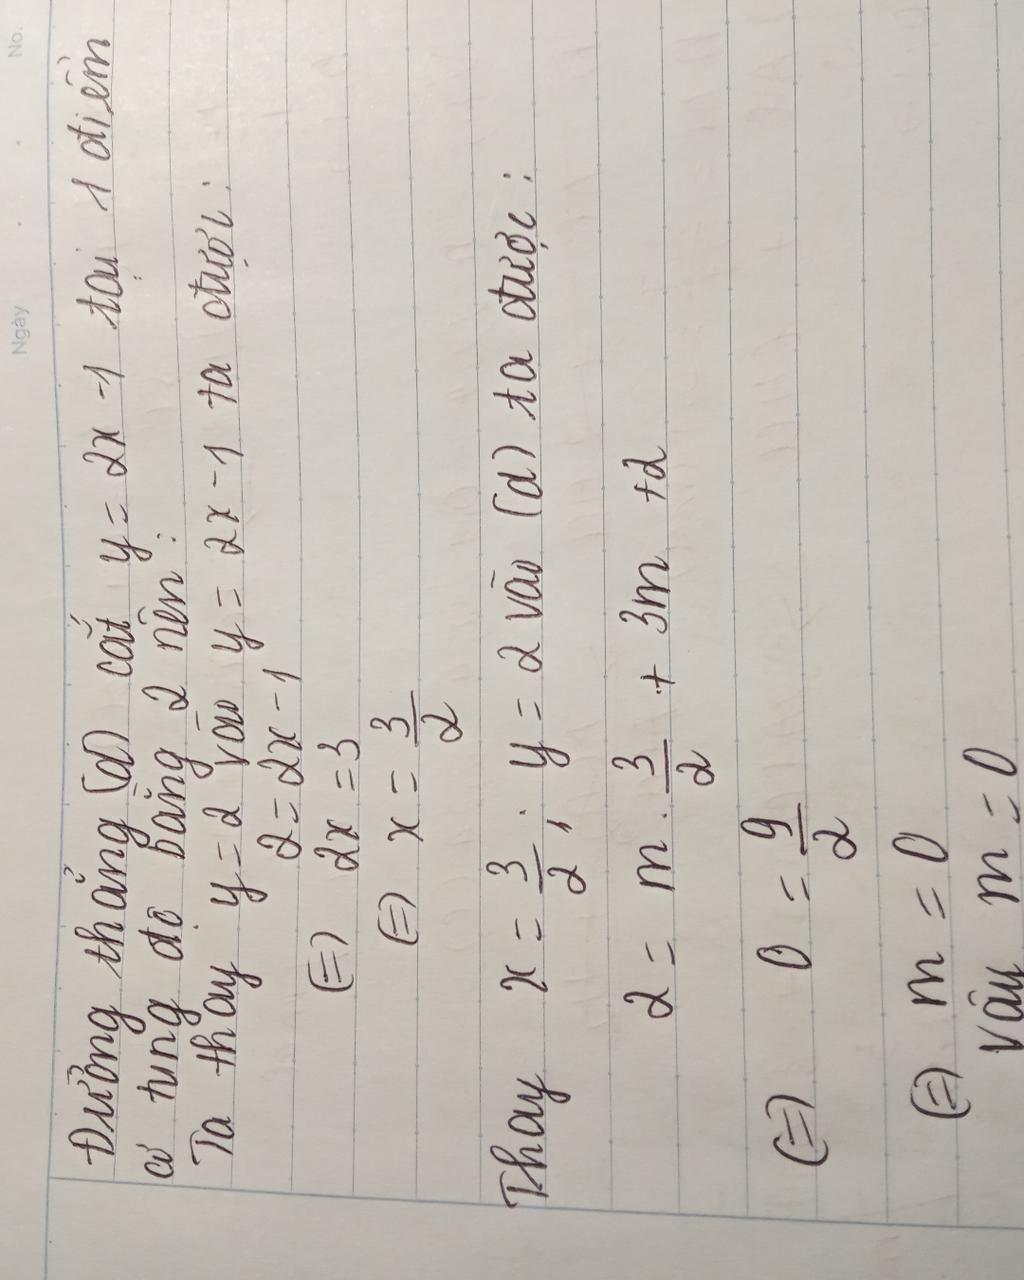 Ngày . . No.
Đường thẳng (d) cắt y = 2x - 1 tại 1 điểm
có tung độ bằng 2 nên :
Ta thay y = 2 vào y = 2x - 1 ta được :
2 = 2x - 1
(=) 2x = 3
(=) x = 3/2
Thay x = 3/2 ; y = 2 vào (d) ta được :
2 = m . 3/2 + 3m + 2
(=) 0 = 9/2
(=) m = 0
vậy m = 0